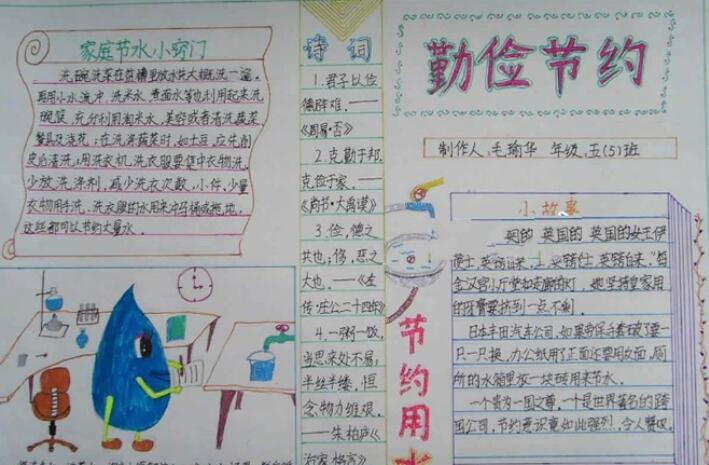 家庭节水小窍门
洗碗,洗菜在盆槽里放水先大概洗一遍。
再用小水流冲,洗米水,煮面水等也利用起来洗
碗筷,充分利用淘米水,果容或者清洗蔬菜,
餐具及浇花;在洗涤蔬菜时,如土豆,应先削
皮后清洗;用洗衣机,洗衣服要集中衣物洗,
少放洗涤剂,减少洗衣次数,小件,少量
衣物用手洗,洗衣服的水用来冲马桶或拖地,
这些都可以节约大量水.
诗词
1.君子以俭
德辟难.——
《周易·否》
2.克勤于邦,
克俭于家.——
《尚书·大禹谟》
3.俭,德之
共也;侈,恶之
大也.——《左
传·庄公二十四年》
4.一粥一饭,
当思来处不易,
半丝半缕,恒
念物力维艰。
——朱柏庐《
治家格言》
勤俭节约
制作人:毛瑜华 年级:五(5)班
小故事
英国的 英国的女王伊
金汉宫小厅堂和走廊的灯,她坚持皇家用
的牙膏要挤到一点不剩。
日本丰田汽车公司,如果劳保手套破了要一
只一只换,办公纸用了正面还要用反面,厕
所的水箱里放一块砖用来节水。
一个贵为一国之尊,一个是世界著名的跨
国公司,节约意识竟如此强烈,令人赞叹.
节约用水